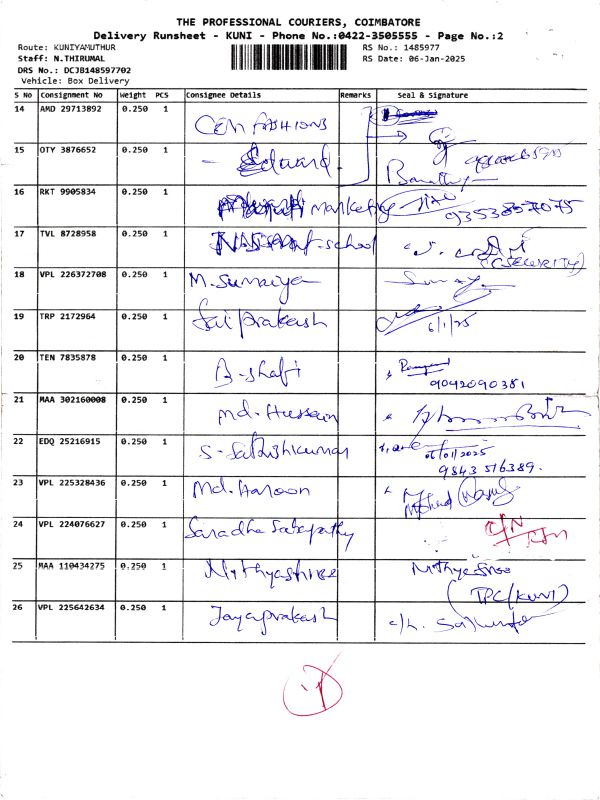 THE PROFESSIONAL COURIERS, COIMBATORE
Delivery Runsheet - KUNI - Phone No.:0422-3505555 - Page No.:2
Route: KUNIYAMUTHUR
RS No.: 1485977
Staff: N.THIRUMAL
RS Date: 06-Jan-2025
DRS No.: DCJB148597702
Vehicle: Box Delivery
S No Consignment No Weight PCS Consignee Details Remarks Seal & Signature
14 AMD 29713892 0.250 1 CEM FASHIONS
15 OTY 3876652 0.250 1 - Edward
16 RKT 9905834 0.250 1 marketing 9353857075
17 TVL 8728958 0.250 1 school (SECURITY)
18 VPL 226372708 0.250 1 M. Sumaiya
19 TRP 2172964 0.250 1 Sai prakash 6/1/25
20 TEN 7835878 0.250 1 B-shafi 9042090381
21 MAA 302160008 0.250 1 Md. Hussain
22 EDQ 25216915 0.250 1 S-Sathishkumar 06/01/2025
9843516389.
23 VPL 225328436 0.250 1 Md. Haroon
24 VPL 224076627 0.250 1 Saradha Sabapathy C/N
25 MAA 110434275 0.250 1 Nithyashree
(TPC/KUNI)
26 VPL 225642634 0.250 1 Jayaprakash